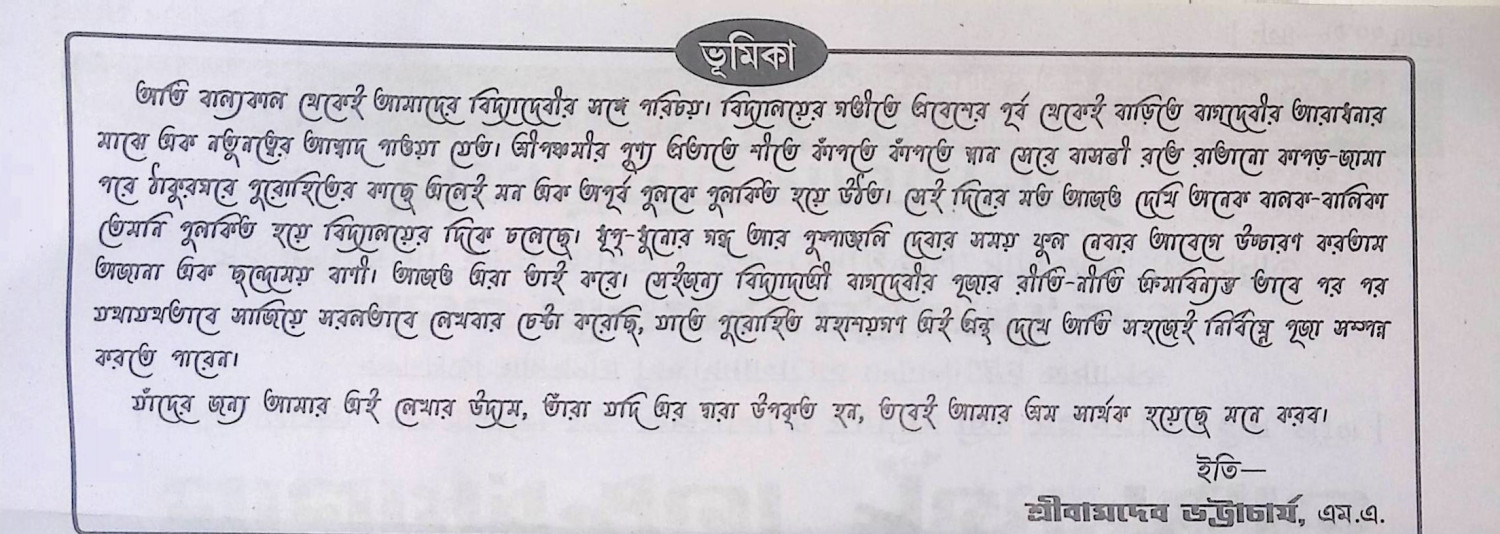 ভূমিকা
অতি বাল্যকাল থেকেই আমাদের বিদ্যাদেবীর সঙ্গে পরিচয়। বিদ্যালয়ের গণ্ডীতে প্রবেশের পূর্ব থেকেই বাড়িতে বাগ্দেবীর আরাধনার
মাঝে এক নতুনত্বের আস্বাদ পাওয়া যেত। শ্রীপঞ্চমীর পুণ্য প্রভাতে শীতে কাঁপতে কাঁপতে স্নান সেরে বাসন্তী রঙে রাঙানো কাপড়-জামা
পরে ঠাকুরঘরে পুরোহিতের কাছে এলেই মন এক অপূর্ব পুলকে পুলকিত হয়ে উঠত। সেই দিনের মত আজও দেখি অনেক বালক-বালিকা
তেমনি পুলকিত হয়ে বিদ্যালয়ের দিকে চলেছে। ধূপ-ধুনোর গন্ধ আর পুষ্পাঞ্জলি দেবার সময় ফুল নেবার আবেগে উচ্চারণ করতাম
অজানা এক ছন্দোময় বাণী। আজও এরা তাই করে। সেইজন্য বিদ্যাদাত্রী বাগ্দেবীর পূজার রীতি-নীতি ক্রমবিন্যস্ত ভাবে পর পর
যথাযথভাবে সাজিয়ে সরলভাবে লেখবার চেষ্টা করেছি, যাতে পুরোহিত মহাশয়গণ এই গ্রন্থ দেখে অতি সহজেই নির্বিঘ্নে পূজা সম্পন্ন
করতে পারেন।
যাঁদের জন্য আমার এই লেখার উদ্যম, তাঁরা যদি এর দ্বারা উপকৃত হন, তবেই আমার শ্রম সার্থক হয়েছে মনে করব।
ইতি—
শ্রীবামদেব ভট্টাচার্য, এম.এ.